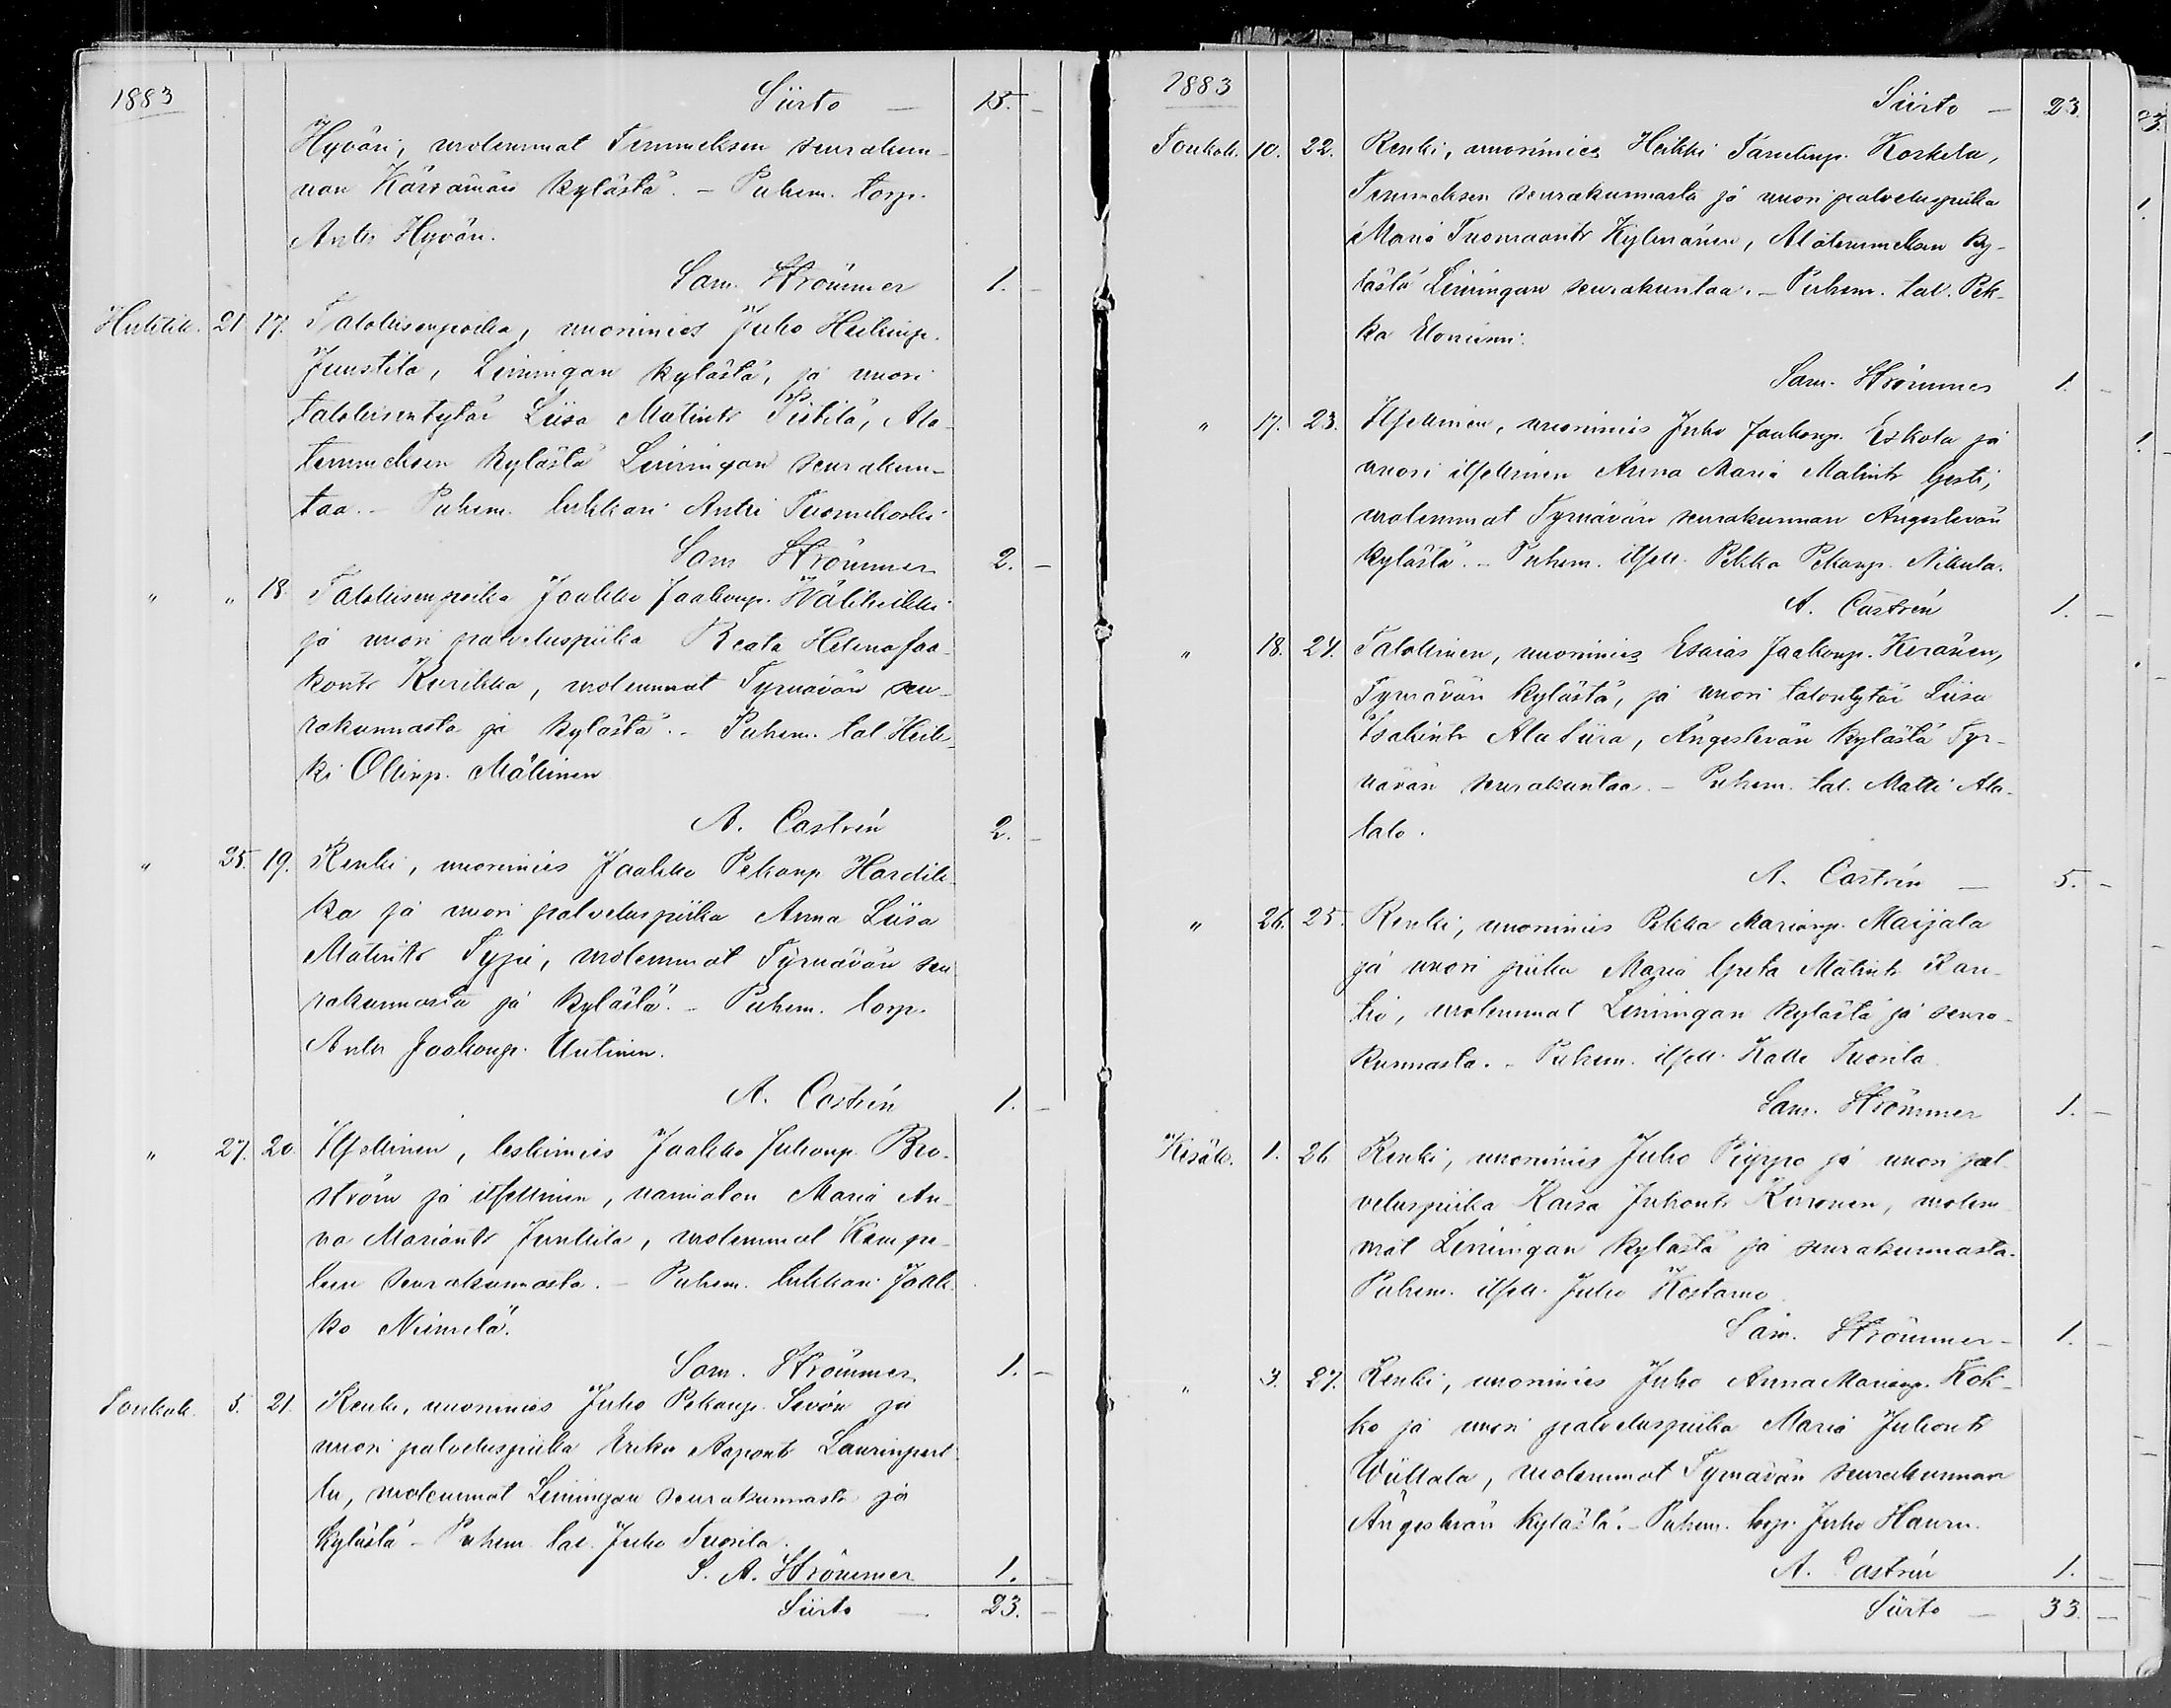 1883
Siirto — 15. –
Hyväri, molemmat Temmeksen seurakun-
nan Kärsämän kylästä. – Puhem. torp.
Antti Hyväri.
Sam. Strömmer 1. –
Huhtik. 21 17. Talollisenpoika, nuorimies Juho Heikinp.
Juustila, Limingan kylästä, ja nuori
talollisentytär Liisa Matintr Pietilä, Ala-
temmeksen kylästä Limingan seurakun-
taa. – Puhem. lukkari Antti Tuomikoski
Sam Strömmer 2. –
" " 18. Talollisenpoika Jaakko Jaakonp. Wäliheikki
ja nuori palveluspiika Beata Helena Jaa-
kontr Kurikka, molemmat Tyrnävän seu-
rakunnasta ja kylästä. – Puhem. tal. Heik-
ki Ollinp. Mäkinen
A. Castrén 2. –
" 25. 19. Renki, nuorimies Jaakko Pekanp Hardik-
ka ja nuori palveluspiika Anna Liisa
Matintr Typpi, molemmat Tyrnävän seu
rakunnasta ja kylästä. – Puhem. torp.
Antti Jaakonp. Uutinen.
A. Castrén 1. –
" 27. 20. Itsellinen, leskimies Jaakko Juhonp. Bro-
ström ja itsellinen, naimaton Maria An-
na Mariantr Junkila, molemmat Kempe-
leen seurakunnasta. – Puhem. lukkari Jaak-
ko Niemelä.
Sam. Strömmer 1. –
Toukok. 5. 21. Renki, nuorimies Juho Pekanp. Sevón ja
nuori palveluspiika Erika Aapontr Laurinpert
tu, molemmat Limingan seurakunnasta ja
kylästä – Puhem tal. Juho Tuorila.
S. A. Strömmer 1. –
Siirto — 23. –
1883
Siirto — 23.
Toukok. 10. 22. Renki, nuorimies Heikki Korkela,
Temmeksen seurakunnasta ja nuori palveluspiika
Maria Tuomaantr Kylmänen, Alatemmeksen ky-
lästä Limingan seurakuntaa. – Puhem. tal. Pek-
ka Uoniemi.
Sam. Strömmer 1. –
" 17. 23. Itsellinen, nuorimies Juho Jaakonp. Eskola ja
nuori itsellinen Anna Maria Matintr Gesti,
molemmat Tyrnävän seurakunnan Ängeslevän
kylästä. – Puhem. itsell. Pekka Pekanp. Nikula.
A. Castrén 1. –
" 18. 24. Talollinen, nuorimies Esaias Jaakonp. Keränen,
Tyrnävän kylästä, ja nuori talontytär Liisa
Isakintr Ala Siira, Ängeslevän kylästä Tyr-
nävän seurakuntaa. – Puhem. tal. Matti Ala-
talo.
A. Castrén — 5. –
" 26. 25. Renki, nuorimies Pekka Marianp. Maijala
ja nuori piika Maria Greta Matintr Rau-
tio, molemmat Limingan kylästä ja seura-
kunnasta. – Puhem. itsell. Kalle Tuorila
Sam. Strömmer 1. –
Kesäk. 1. 26 Renki, nuorimies Juho Piippo ja nuori pal-
veluspiika Kaisa Juhontr Kinnunen, molem
mat Limingan kylästä ja seurakunnasta.
Puhem. itsell. Juho Kostamo
Sam. Strömmer – 1. –
" 3. 27. Renki, nuorimies Juho AnnaMarianp. Kok-
ko ja nuori palveluspiika Maria Juhontr
Wiittala, molemmat Tyrnävän seurakunnan
Ängeslevän kylästä. – Puhem. torp. Juho Hannu.
A. Castrén 1. –
Siirto — 33. –